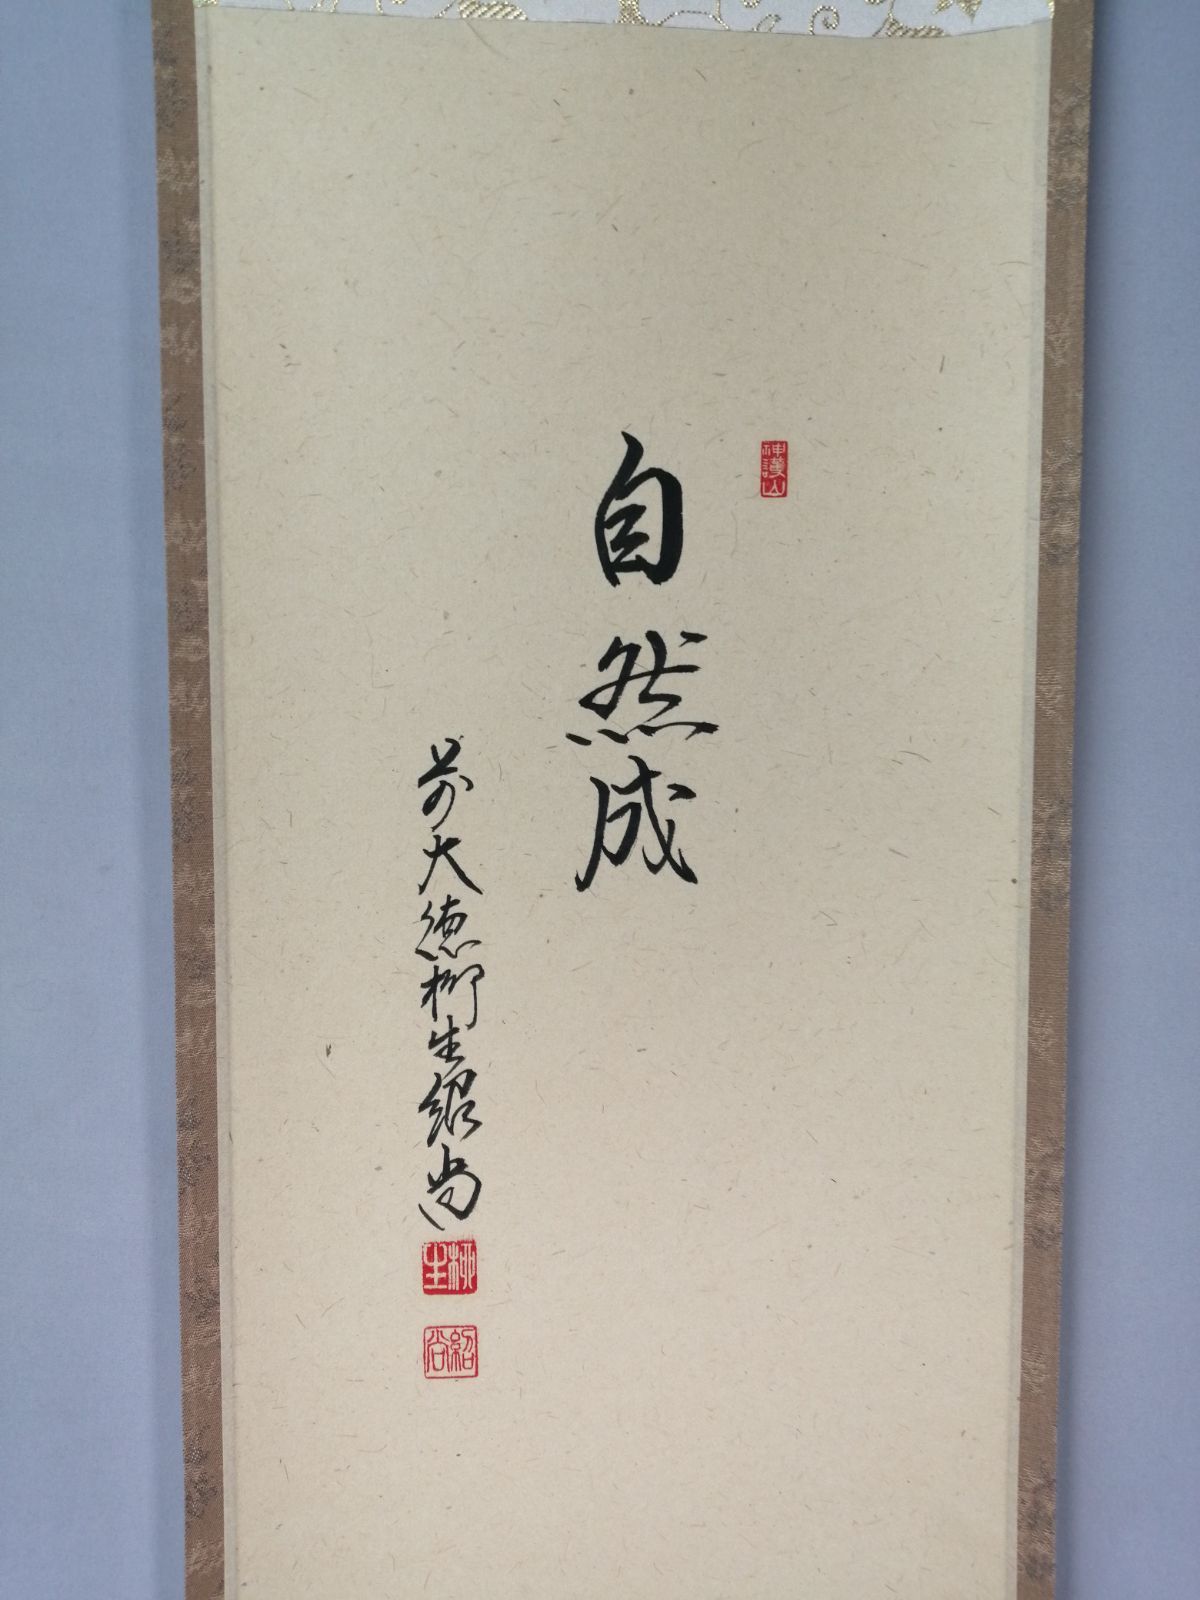 神護山
自然成
前大徳柳生紹尚
柳生
紹尚